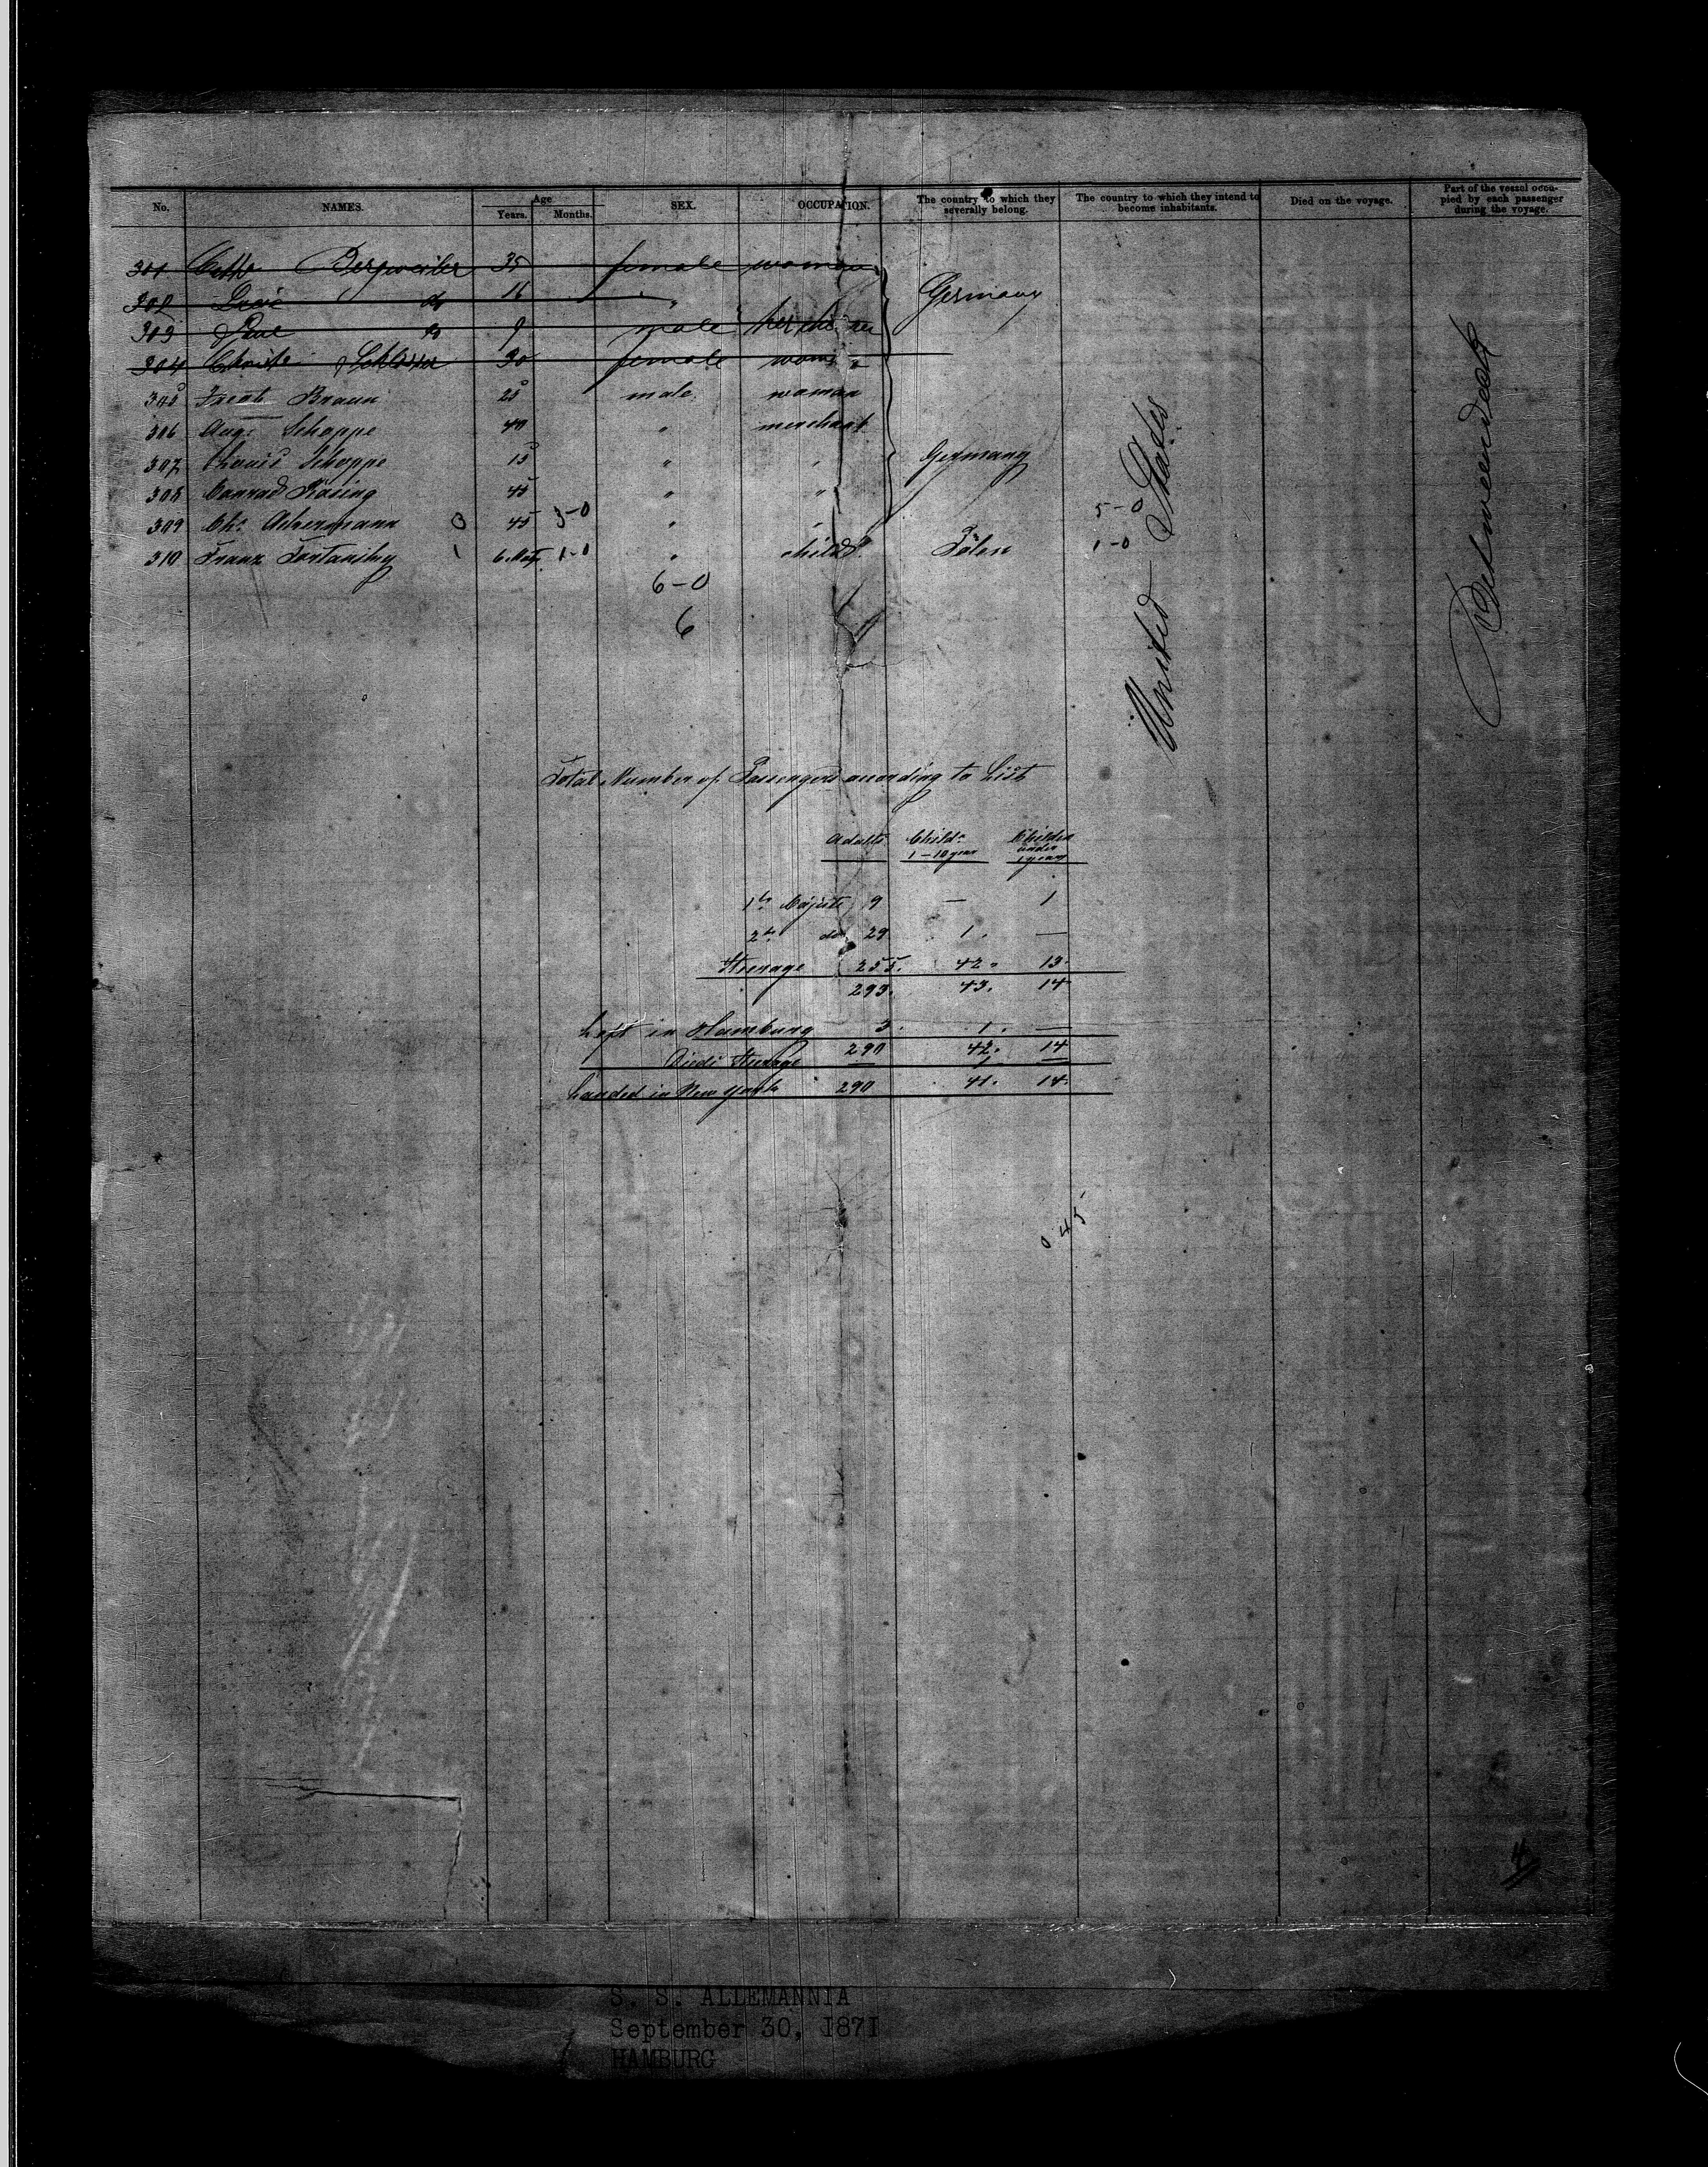 No. NAMES. Age Years. Months. SEX. OCCUPATION. The country to which they severally belong. The country to which they intend to become inhabitants. Died on the voyage. Part of the vessel occupied by each passenger during the voyage.
301 Bergweiler 35 female woman
302 do 16 "
Germany
303 Paul do 9 male her children
304 30 female woman
305 Braun 25 male woman
306 Aug. Schoppe 40 " merchant
307 Louis Schoppe 15 " "
Germany
308 Conrad Käsing 45 " "
309 Chs. Ackermann 3 45 3-0 " " 5-0
310 Franz 1 6. Mts. 1-0 " child Polen 1-0
6-0
6
United States
Betweendeck
Total Number of Passengers according to List
Adults Childr. 1-10 year Children under 1 year
1te Cajüte 9 — 1
2te do 29 1. —
Steerage 255. 42. 13.
293. 43. 14
Left in Hamburg 3. 1. —
290 42. 14
Died Steerage — 1 —
Landed in New York 290 41. 14.
0 45
4
S. S. ALLEMANNIA
September 30, 1871
HAMBURG